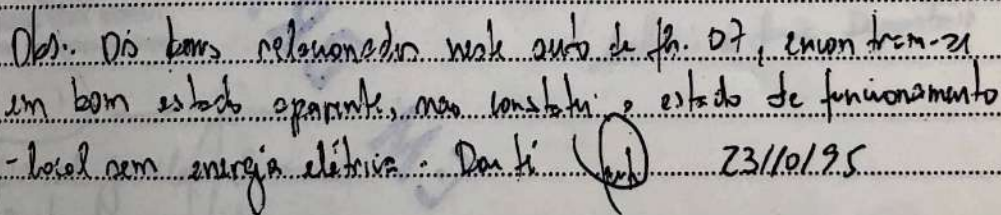 Obs.: Os bens relacionados neste auto de fh. 07, encontram-se
em bom estado aparente, nao constatei o estado de funcionamento
- local sem energia elétrica. Dou fé 23/10/95